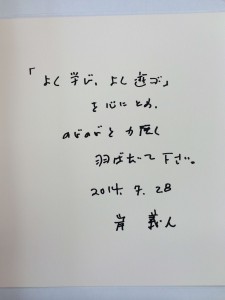 「よく学び、よく遊ぶ」
を心にとめ、
のびのびと力強く
羽ばたいて下さい。
2014. 7. 28
岸 義人